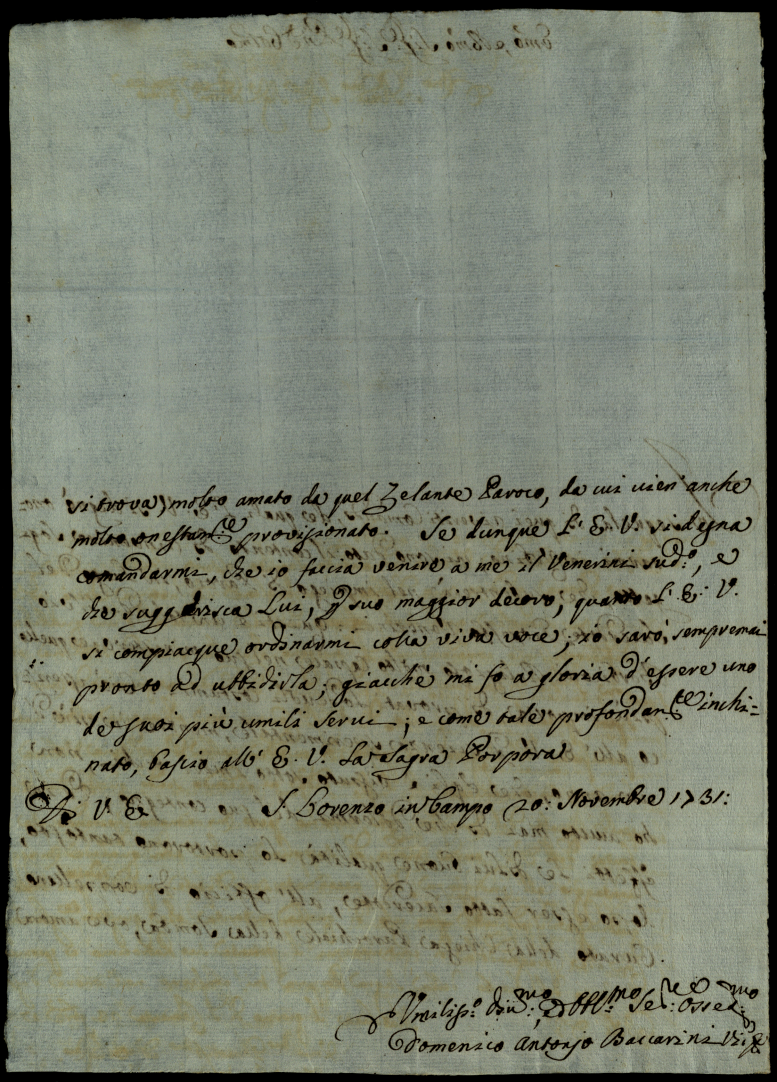 si trova) molto amato da quel Zelante Paroco, da cui vien' anche
molto onestam.te provisionato. Se dunque l' E. V. si degna
comandarmi, che io faccia venire à me il Venerini sud.o, e
che suggerisca Lui, p suo maggior decoro, quanto l' E. V.
si compiacque ordinarmi colla viva voce; io sarò sempremai
pronto ad ubbidirla; giacchè mi fo a gloria d' essere uno
de suoi più umili servi; e come tale profondam.te inchi=
nato, bascio all' E. V. La Sagra Porpora
Di V. E. S. Lorenzo in Campo 20: Novembre 1731:
Umiliss.o Div.mo, ed Obbl.mo Se.re Osseq.mo
Domenico Antonio Baccarini